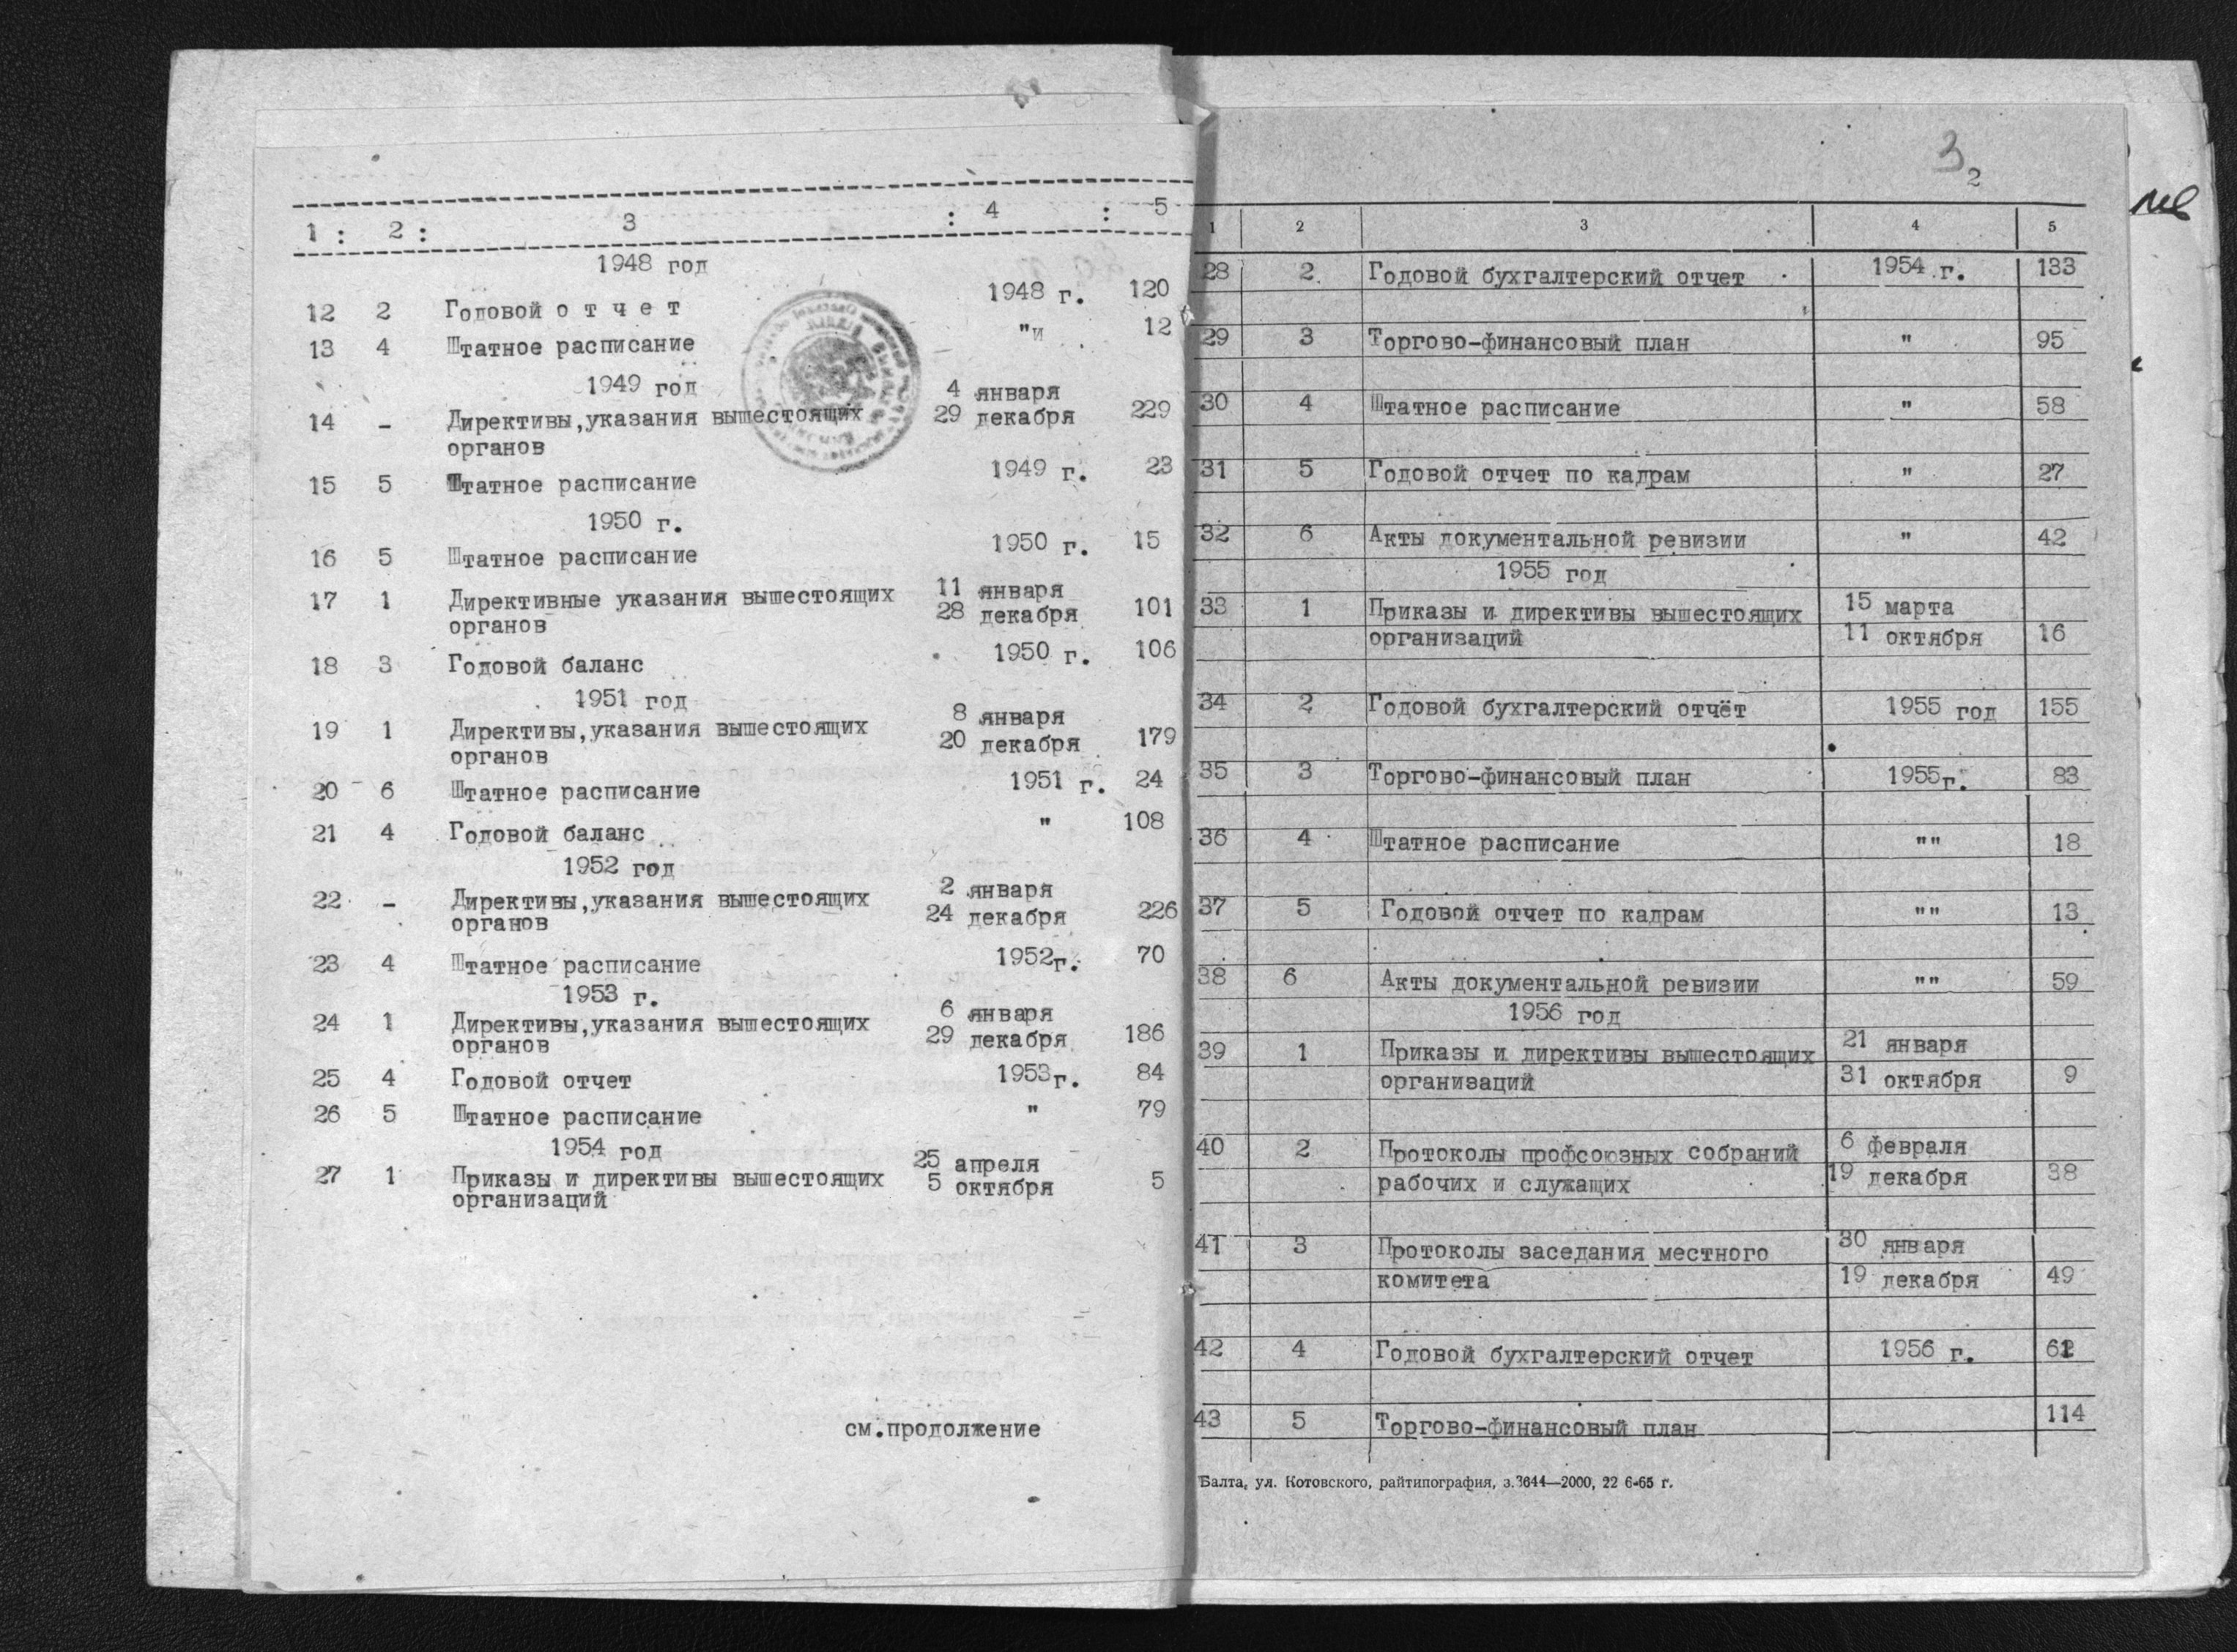 1 : 2 : 3 : 4 : 5
1948 год
12 2 Годовой о т ч е т 1948 г. 120
13 4 Штатное расписание "и 12
1949 год
14 - Директивы,указания вышестоящих 4 января
органов 29 декабря 229
15 5 Штатное расписание 1949 г. 23
1950 г.
16 5 Штатное расписание 1950 г. 15
17 1 Директивные указания вышестоящих 11 января
органов 28 декабря 101
18 3 Годовой баланс 1950 г. 106
1951 год
19 1 Директивы,указания вышестоящих 8 января
органов 20 декабря 179
20 6 Штатное расписание 1951 г. 24
21 4 Годовой баланс " 108
1952 год
22 - Директивы,указания вышестоящих 2 января
органов 24 декабря 226
23 4 Штатное расписание 1952г. 70
1953 г.
24 1 Директивы,указания вышестоящих 6 января
органов 29 декабря 186
25 4 Годовой отчет 1953г. 84
26 5 Штатное расписание " 79
1954 год
27 1 Приказы и директивы вышестоящих 25 апреля
организаций 5 октября 5
см.продолжение
3
2
1 2 3 4 5
28 2. Годовой бухгалтерский отчет 1954 г. 133
29 3 Торгово-финансовый план " 95
30 4 Штатное расписание " 58
31 5 Годовой отчет по кадрам " 27
32 6 Акты документальной ревизии " 42
1955 год
33 1 Приказы и директивы вышестоящих 15 марта
организаций 11 октября 16
34 2 Годовой бухгалтерский отчёт 1955 год 155
35 3 Торгово-финансовый план 1955г. 83
36 4 Штатное расписание "" 18
37 5 Годовой отчет по кадрам "" 13
38 6 Акты документальной ревизии "" 59
1956 год
39 1 Приказы и директивы вышестоящих 21 января
организаций 31 октября 9
40 2 Протоколы профсоюзных собраний 6 февраля
рабочих и служащих 19 декабря 38
41 3 Протоколы заседания местного 30 января
комитета 19 декабря 49
42 4 Годовой бухгалтерский отчет 1956 г.
43 5 Торгово-финансовый план 114
Балта, ул. Котовского, райтипография, з.3644—2000, 22 6-65 г.